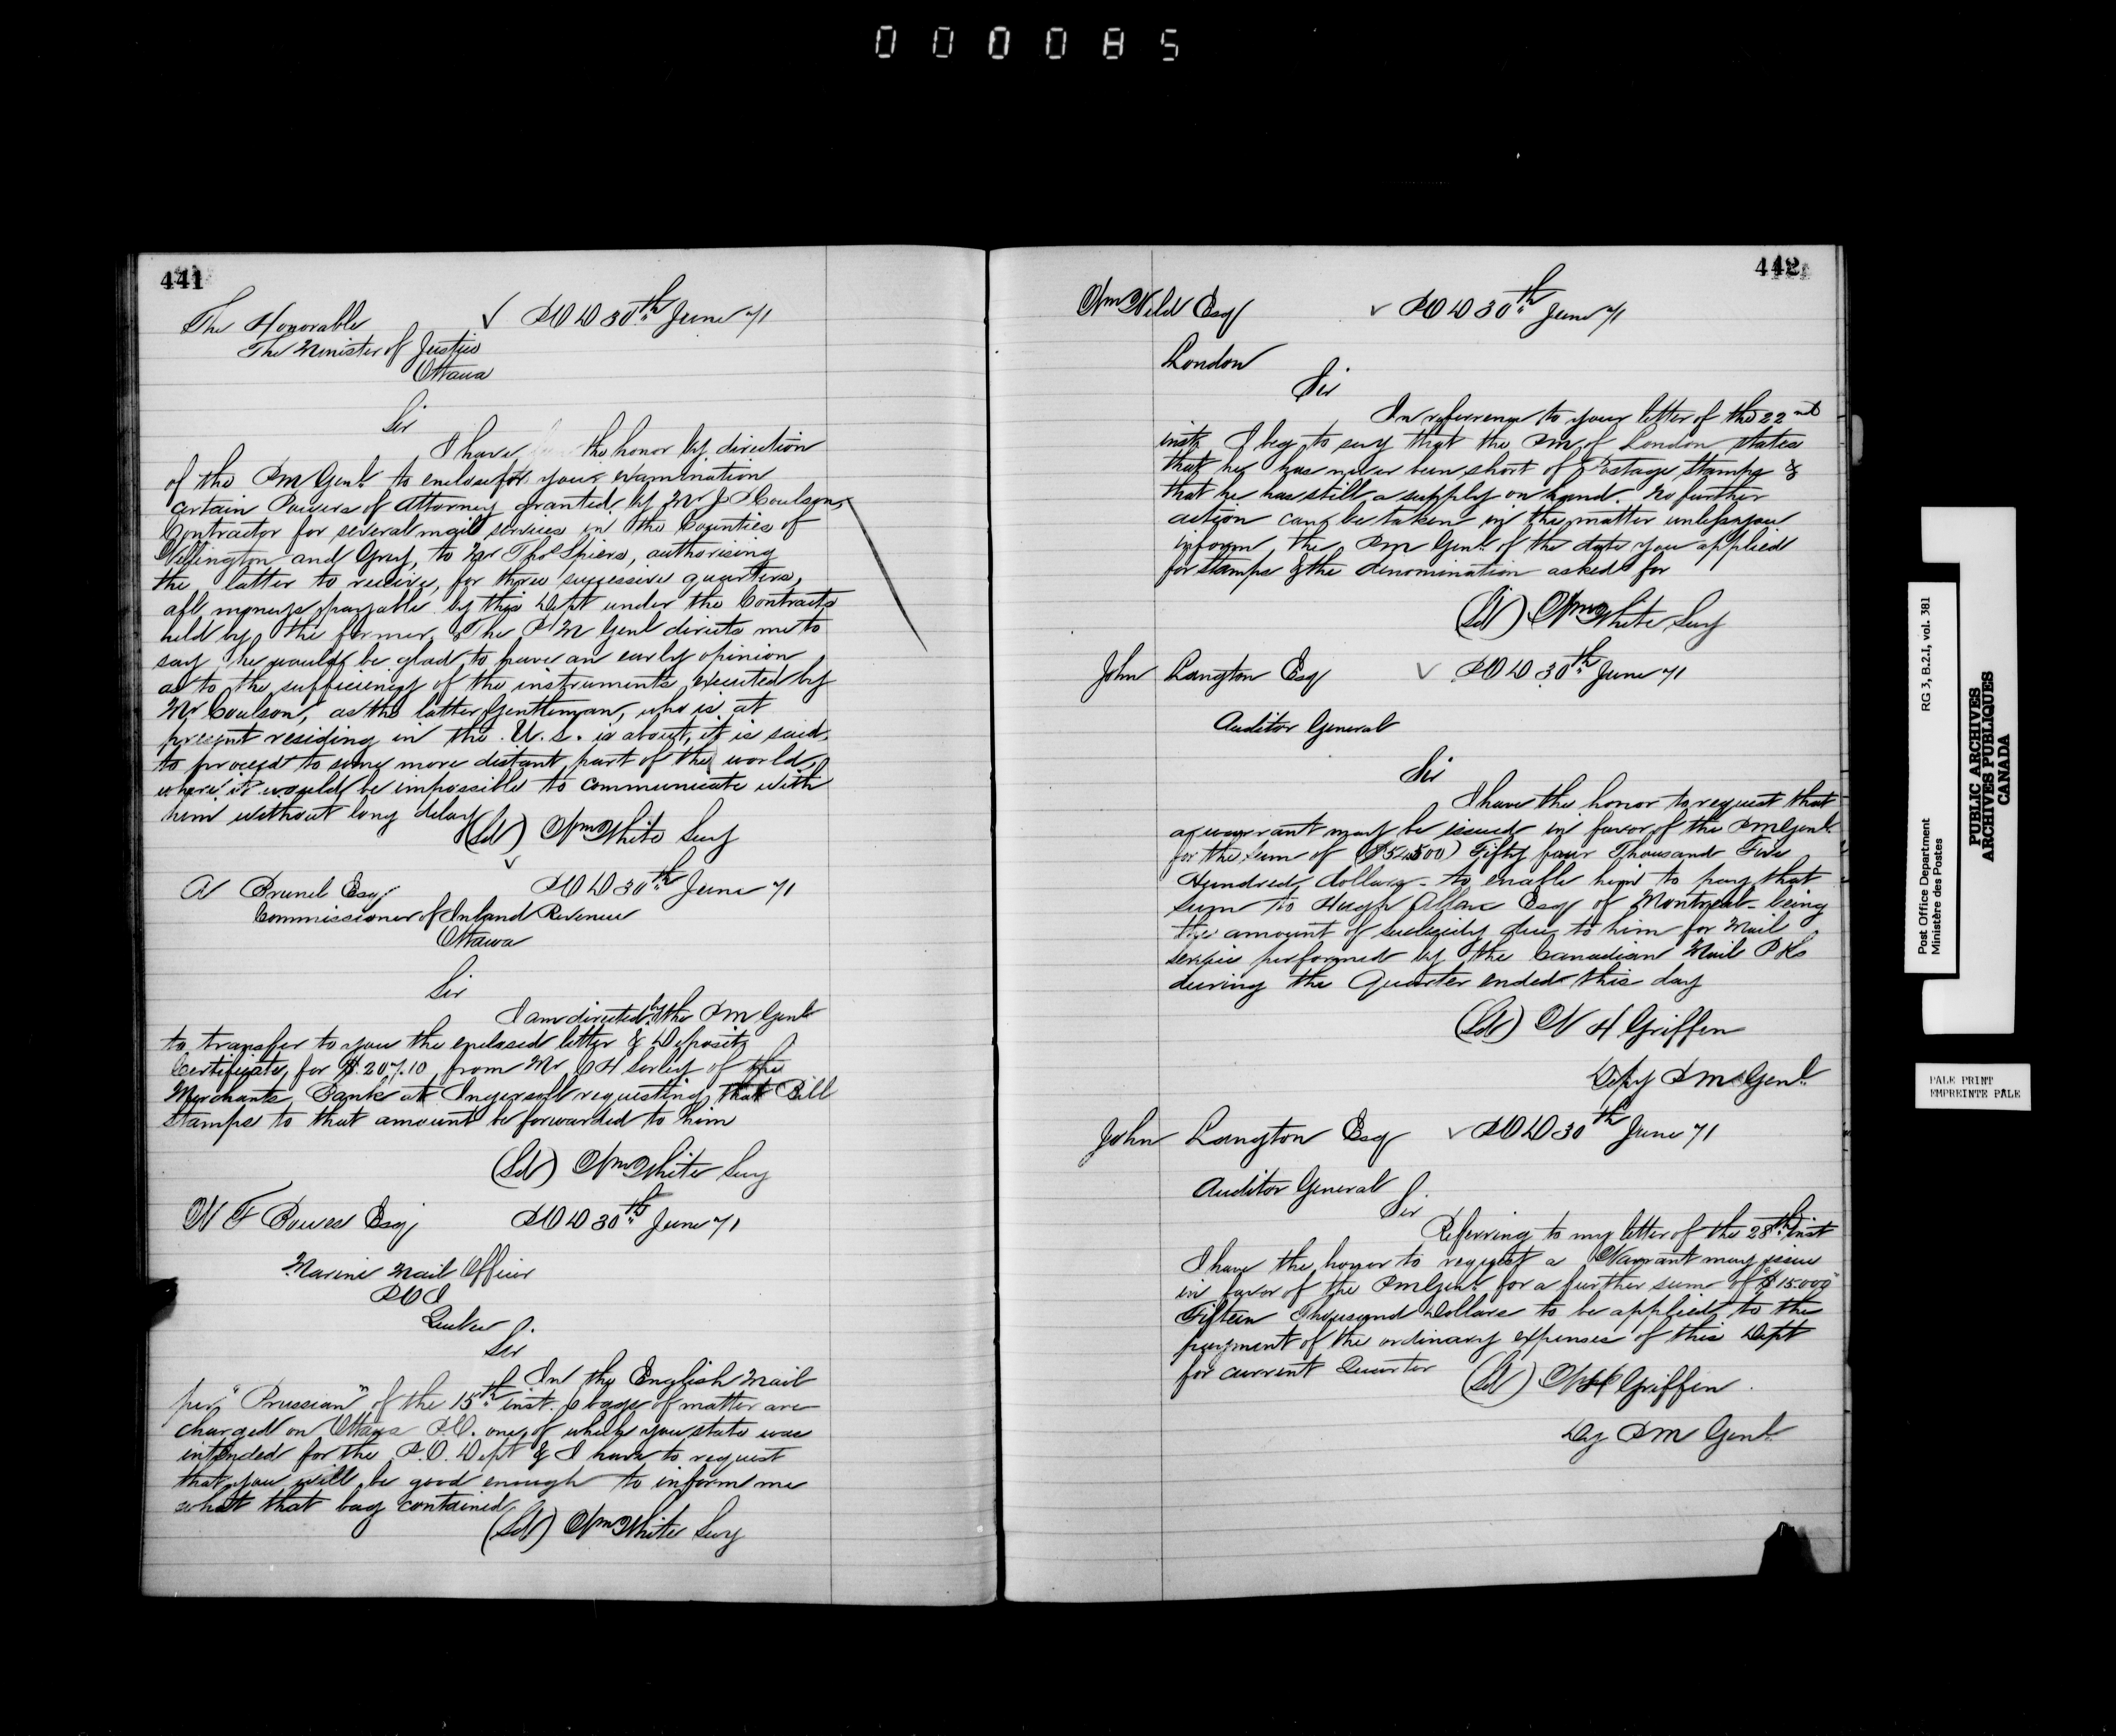 000085
441
The Honorable ✓ P O D 30th June 71
The Minister of Justice
Ottawa
Sir
I have the honor by direction
of the P M Genl to enclose for your examination
certain Powers of Attorney granted by Mr J Coulson,
Contractor for several mail services in the Counties of
Wellington and Grey, to Mr Thos Spiers, authorising
the latter to receive, for three successive quarters,
all moneys payable by this Dept under the Contracts
held by the former. The P M Genl directs me to
say he would be glad to have an early opinion
as to the sufficiency of the instruments executed by
Mr Coulson, as the latter gentleman, who is at
present residing in the U.S. is about, it is said,
to proceed to some more distant part of the world,
where it would be impossible to communicate with
him without long delay
(Sd) Wm White Secy
A Brunel Esq ✓ P O D 30th June 71
Commissioner of Inland Revenue
Ottawa
Sir
I am directed by the P M Genl
to transfer to you the enclosed letter & Deposit
Certificate, for $207.10 from Mr C H Sorley of the
Merchants Bank at Ingersoll requesting that Bill
Stamps to that amount be forwarded to him
(Sd) Wm White Secy
W F Bowes Esq P O D 30th June 71
Marine Mail Officer
P O I
Quebec
Sir
In the English Mail
per "Prussian" of the 15th inst. bags of matter are
charged on Ottawa P.O. one of which you state was
intended for the P.O. Dept & I have to request
that you will be good enough to inform me
what that bag contained
(Sd) Wm White Secy
442
Wm Weld Esq ✓ P O D 30th June 71
London
Sir
In reference to your letter of the 22nd
inst. I beg to say that the P M of London states
that he has never been short of Postage Stamps &
that he has still a supply on hand. No further
action can be taken in the matter unless you
inform the P M Genl of the date you applied
for stamps & the denomination asked for
(Sd) Wm White Secy
John Langton Esq ✓ P O D 30th June 71
Auditor General
Sir
I have the honor to request that
a warrant may be issued in favor of the P M Genl
for the sum of ($54500) Fifty four Thousand Five
Hundred dollars - to enable him to pay that
sum to Hugh Allan Esq of Montreal - being
the amount of subsidy due to him for Mail
service performed by the Canadian Mail Pkts
during the Quarter ended this day
(Sd) W H Griffin
Depy P M Genl
John Langton Esq ✓ P O D 30th June 71
Auditor General
Sir
Referring to my letter of the 28th inst
I have the honor to request a Warrant may issue
in favor of the P M Genl for a further sum of "$15000"
Fifteen Thousand Dollars to be applied to the
payment of the ordinary expenses of this Dept
for current Quarter
(Sd) W H Griffin
Dy P M Genl
Post Office Department RG 3, B.2.I, vol. 381
Ministère des Postes
PUBLIC ARCHIVES
ARCHIVES PUBLIQUES
CANADA
PALE PRINT
EMPREINTE PÂLE